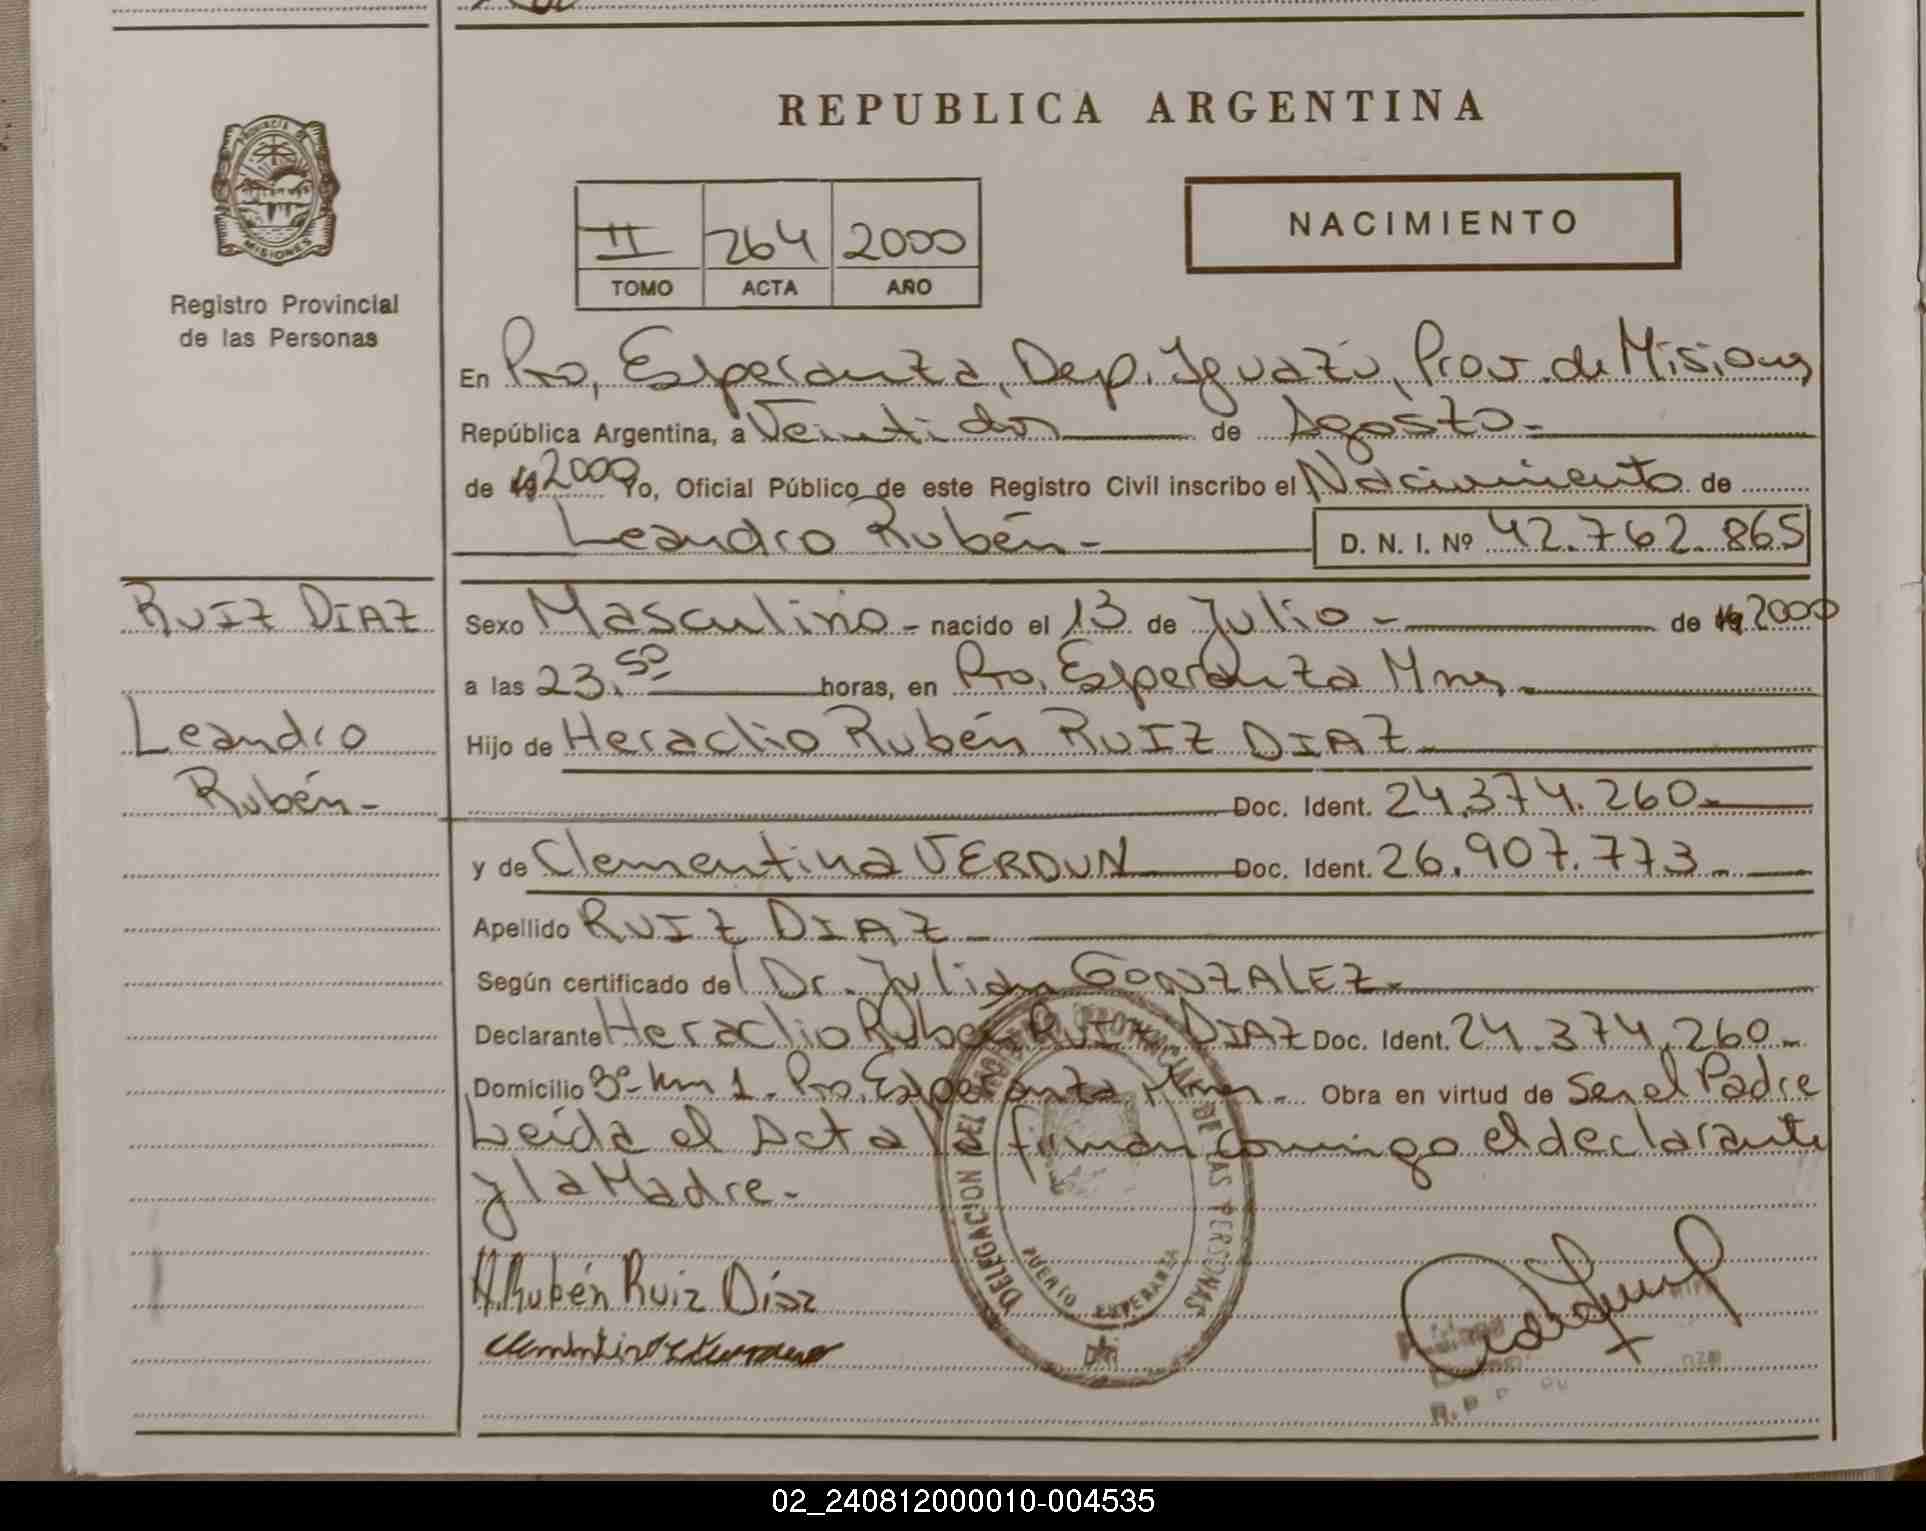 REPUBLICA ARGENTINA
PROVINCIA DE
MISIONES
Registro Provincial
de las Personas
II 264 2000
TOMO ACTA AÑO
NACIMIENTO
En Pto, Esperanza, Dep. Iguazú, Prov. de Misiones
República Argentina, a Veintidos de Agosto-
de 19 2000 Yo, Oficial Público de este Registro Civil inscribo el Nacimiento de
Leandro Rubén- D. N. I. Nº 42.762.865
RUIZ DIAZ
Leandro
Rubén-
Sexo Masculino- nacido el 13 de Julio- de 19 2000
a las 23.50 horas, en Pto. Esperanza Mnes-
Hijo de Heraclio Rubén RUIZ DIAZ-
Doc. Ident. 24.374.260-
y de Clementina VERDUN Doc. Ident. 26.907.773-
Apellido RUIZ DIAZ-
Según certificado del Dr. Julian GONZALEZ-
Declarante Heraclio Rubén RUIZ DIAZ Doc. Ident. 24.374.260-
Domicilio 3º km 1- Pto. Esperanza Mnes- Obra en virtud de Ser el Padre
Leída el Acta firman comigo el declarante
y la Madre-
DELEGACION DEL REGISTRO PROVINCIAL DE LAS PERSONAS
PUERTO ESPERANZA
H. Rubén Ruiz Díaz
02_240812000010-004535